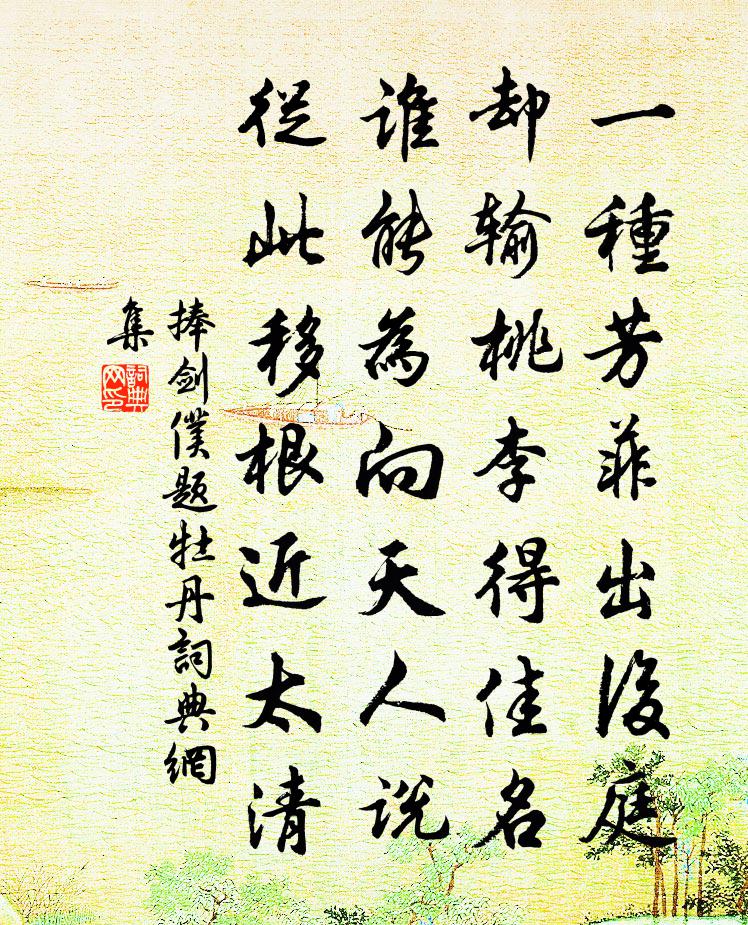 一種芳菲出後庭
却輸桃李得佳名
誰能為向天人說
從此移根近太清
捧劍僕題牡丹詞典網
集
詞典
网印